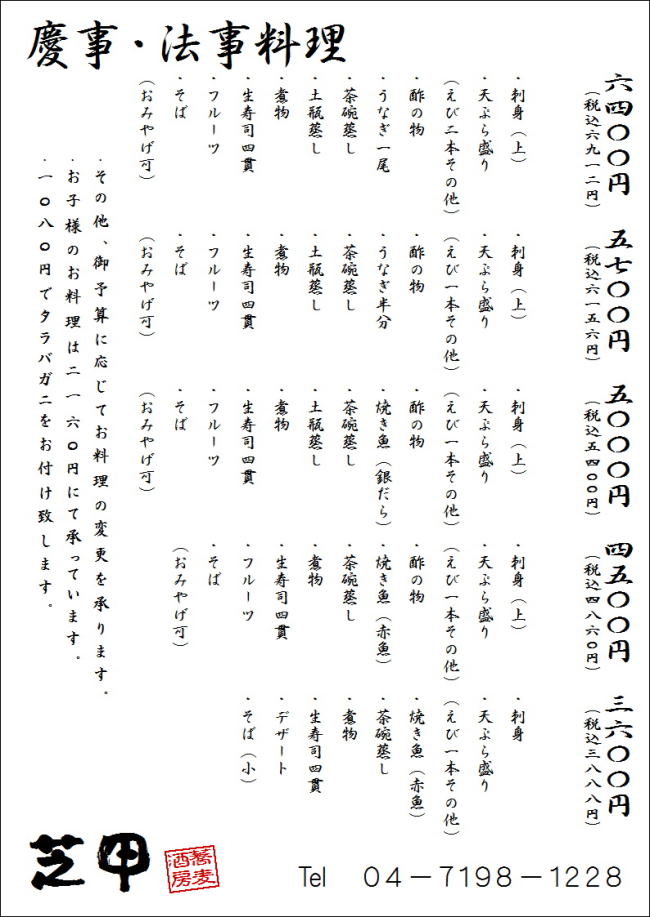 慶事・法事料理
六四〇〇円
（税込六九一二円）
・刺身（上）
・天ぷら盛り
（えび二本その他）
・酢の物
・うなぎ一尾
・茶碗蒸し
・土瓶蒸し
・煮物
・生寿司四貫
・フルーツ
・そば
（おみやげ可）
五七〇〇円
（税込六一五六円）
・刺身（上）
・天ぷら盛り
（えび一本その他）
・酢の物
・うなぎ半分
・茶碗蒸し
・土瓶蒸し
・煮物
・生寿司四貫
・フルーツ
・そば
（おみやげ可）
五〇〇〇円
（税込五四〇〇円）
・刺身（上）
・天ぷら盛り
（えび一本その他）
・酢の物
・焼き魚（銀だら）
・茶碗蒸し
・土瓶蒸し
・煮物
・生寿司四貫
・フルーツ
・そば
（おみやげ可）
四五〇〇円
（税込四八六〇円）
・刺身（上）
・天ぷら盛り
（えび一本その他）
・酢の物
・焼き魚（赤魚）
・茶碗蒸し
・煮物
・生寿司四貫
・フルーツ
・そば
（おみやげ可）
三六〇〇円
（税込三八八八円）
・刺身
・天ぷら盛り
（えび一本その他）
・焼き魚（赤魚）
・茶碗蒸し
・煮物
・生寿司四貫
・デザート
・そば（小）
・その他、御予算に応じてお料理の変更を承ります。
・お子様のお料理は二一六〇円にて承っています。
・一〇八〇円でタラバガニをお付け致します。
芝甲
蕎麦
酒房
Tel　04－7198－1228